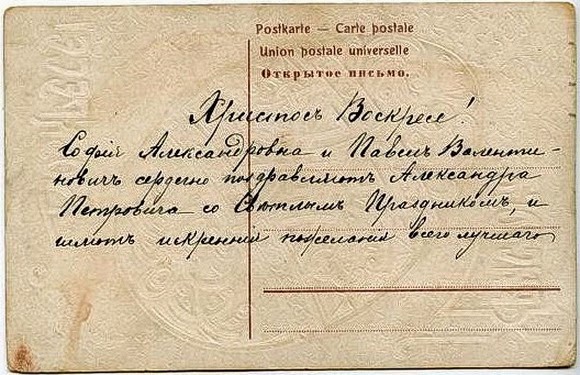 Postkarte — Carte postale
Union postale universelle
Открытое письмо.
Христосъ Воскресе!
Софія Александровна и Павелъ Валенти-
новичъ сердечно поздравляютъ Александра
Петровича со Свѣтлымъ Праздникомъ, и
шлютъ искреннія пожеланія всего лучшаго